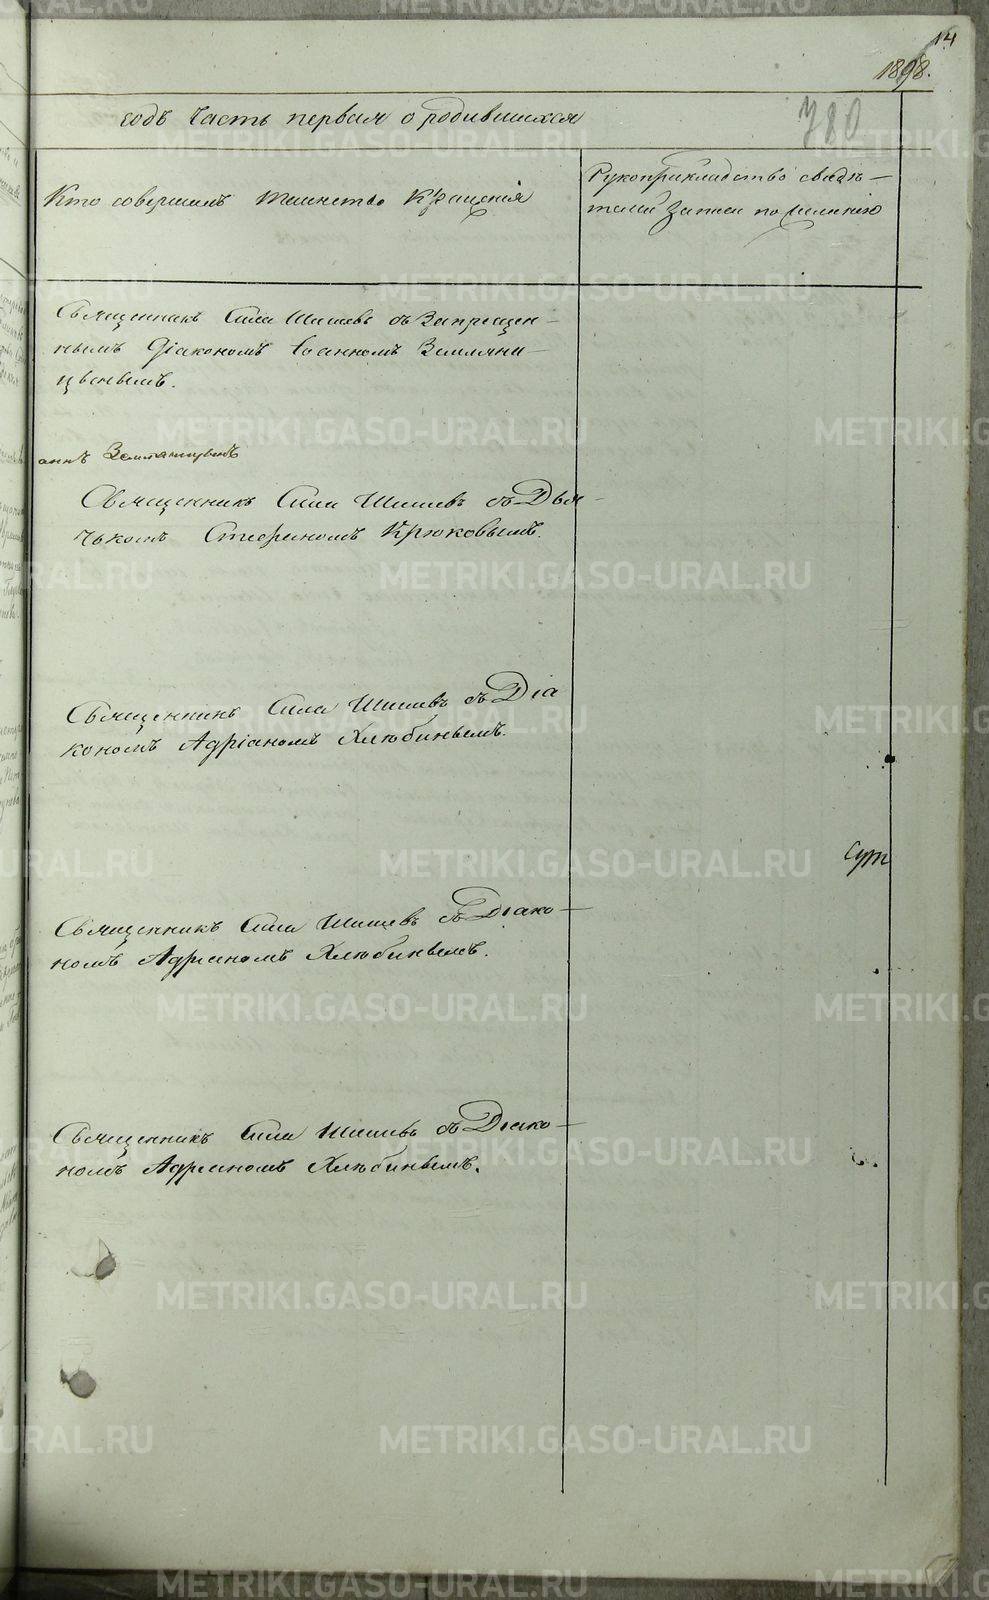 14
1898.
годъ Часть первая о родившихся
780
Кто совершалъ таинство Крещенія
Рукоприкладство свидѣ-
телей записи по желанію
Священникъ Сила Шишевъ съ Запрещен-
нымъ Діакономъ Іоанномъ Земляни-
цынымъ.
аннъ Земляницынъ
Священникъ Сила Шишевъ съ Дья-
чкомъ Стефаномъ Крюковымъ.
Священникъ Сила Шишевъ съ Діа
кономъ Адріаномъ Хлюбинымъ.
Сут
Священникъ Сила Шишевъ съ Діако-
номъ Адріаномъ Хлюбинымъ.
Священникъ Сила Шишевъ съ Діако-
номъ Адріаномъ Хлюбинымъ.
METRIKI.GASO-URAL.RU